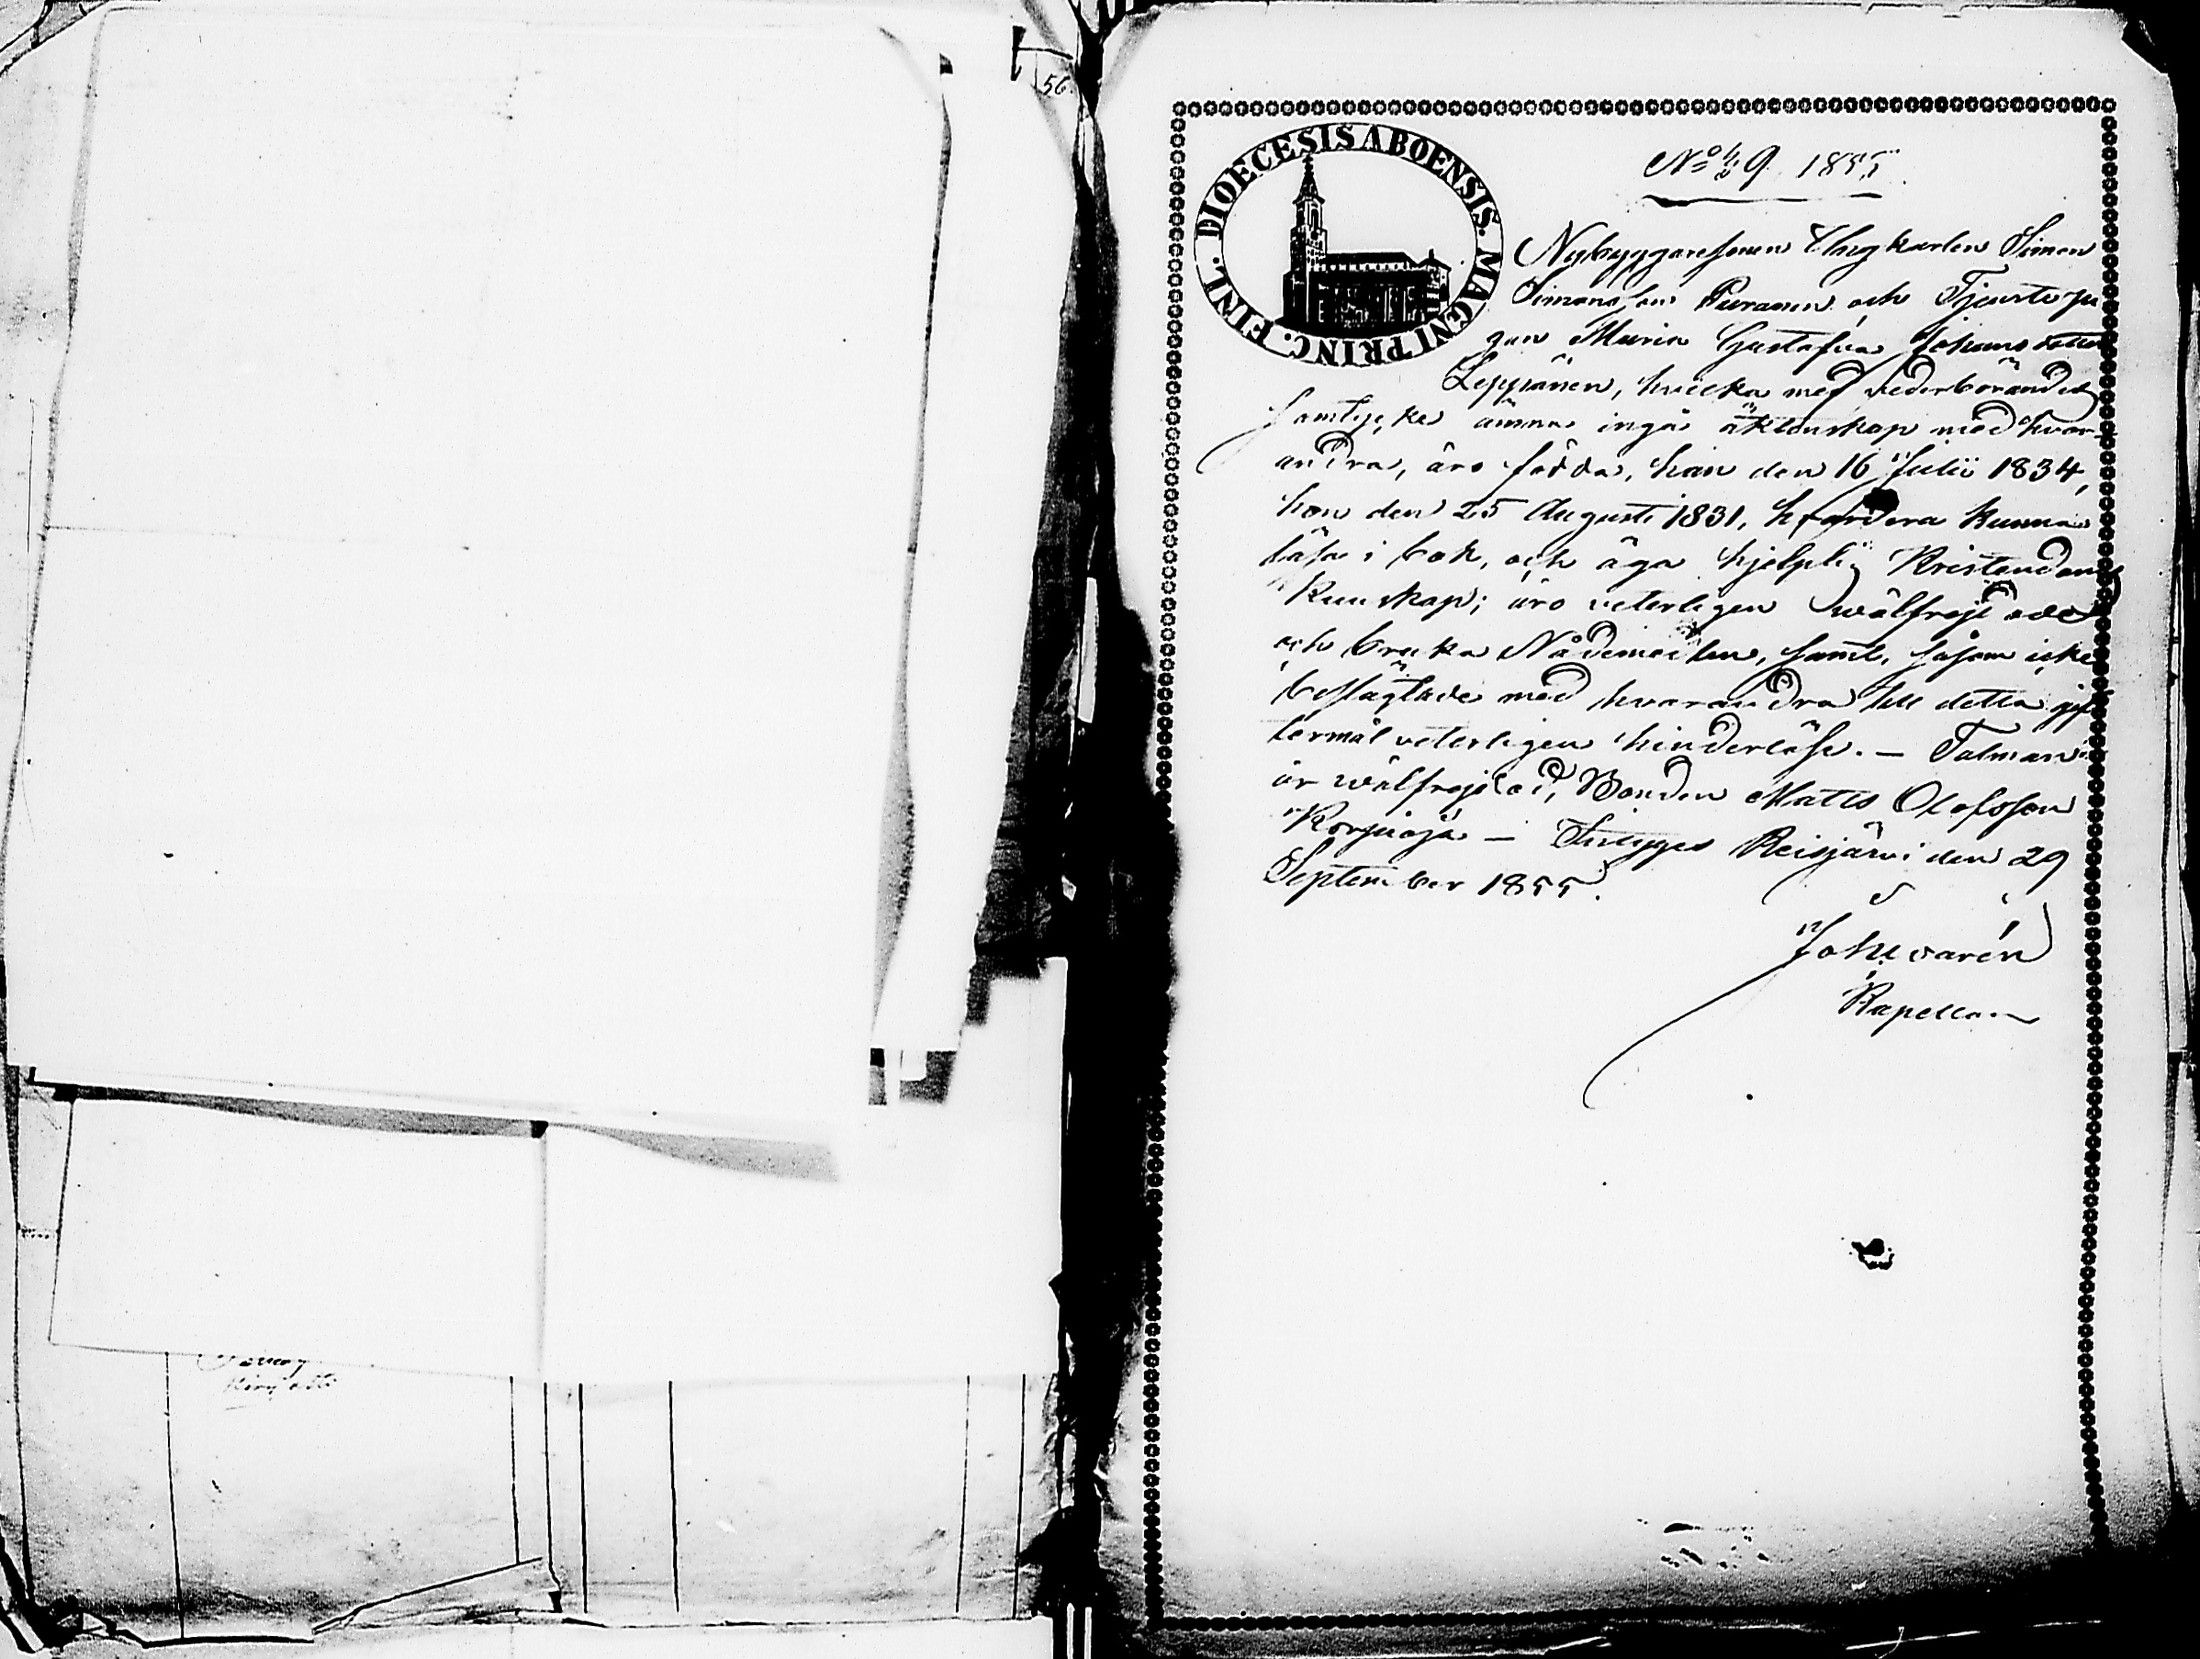 56.
DIOECESIS ABOENSIS. MAGNI PRINC. FINL.
No 49 1855.
Nybyggaresonen Ungkarlen Simon
Simonsson Puranen och Tjenstepi
gan Maria Gustafva Johansdotter
Leppänen, hvilka med vederbörandes
samtycke ämna ingå äktenskap med hvar-
andra, äro födda, han den 16 Julii 1834,
hon den 25 Augusti 1831, hvardera kunna
läsa i bok, och äga hjelplig Kristendoms
Kunskap; äro veterligen wälfrejdade
och bruka Nådemedlen, samt, såsom icke
beslägtade med hvarandra till detta gif
termål veterligen hinderlöse. — Talman
är wälfrejdad, Bonden Matts Olofsson
Korpioja — Intygas Reisjärvi den 29
September 1855.
Kapellan